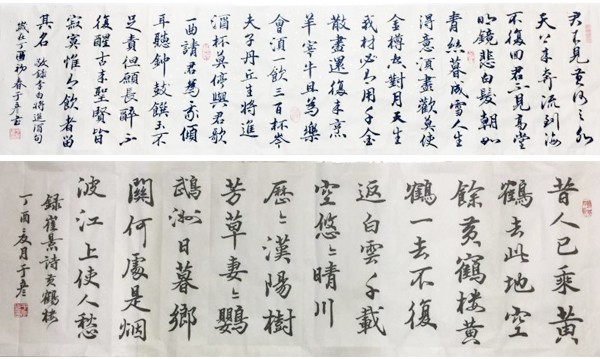 君不見黃河之水
天上來奔流到海
不復回君不見高堂
明鏡悲白髮朝如
青絲暮成雪人生
得意須盡歡莫使
金樽空對月天生
我材必有用千金
散盡還復來烹
羊宰牛且為樂
會須一飲三百杯岑
夫子丹丘生將進
酒杯莫停與君歌
一曲請君為我傾
耳聽鐘鼓饌玉不
足貴但願長醉不
復醒古來聖賢皆
寂寞惟有飲者留
其名 敬錄李白將進酒句
歲在丁酉初春于彥書
昔人已乘黃
鶴去此地空
餘黃鶴樓黃
鶴一去不復
返白雲千載
空悠々晴川
歷々漢陽樹
芳草萋々鸚
鵡洲日暮鄉
關何處是烟
波江上使人愁
録崔景詩黃鶴樓
丁酉夏月于彥